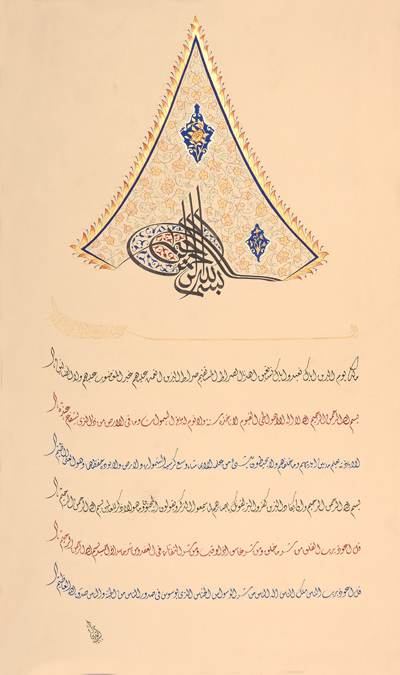 بسم الله الرحمن الرحيم
ملك يوم الدين اياك نعبد واياك نستعين اهدنا الصراط المستقيم صراط الذين انعمت عليهم غير المغضوب عليهم ولا الضالين
بسم الله الرحمن الرحيم الله لا اله الا هو الحي القيوم لا تاخذه سنة ولا نوم له ما في السموات وما في الارض من ذا الذي يشفع عنده
الا باذنه يعلم ما بين ايديهم وما خلفهم ولا يحيطون بشئ من علمه الا بما شاء وسع كرسيه السموات والارض ولا يوده حفظهما وهو العلي العظيم
بسم الله الرحمن الرحيم وان يكاد الذين كفروا ليزلقونك بابصارهم لما سمعوا الذكر ويقولون انه لمجنون وما هو الا ذكر للعالمين بسم الله الرحمن الرحيم
قل اعوذ برب الفلق من شر ما خلق ومن شر غاسق اذا وقب ومن شر النفاثات في العقد ومن شر حاسد اذا حسد بسم الله الرحمن الرحيم
قل اعوذ برب الناس ملك الناس اله الناس من شر الوسواس الخناس الذي يوسوس في صدور الناس من الجنة والناس صدق الله العظيم